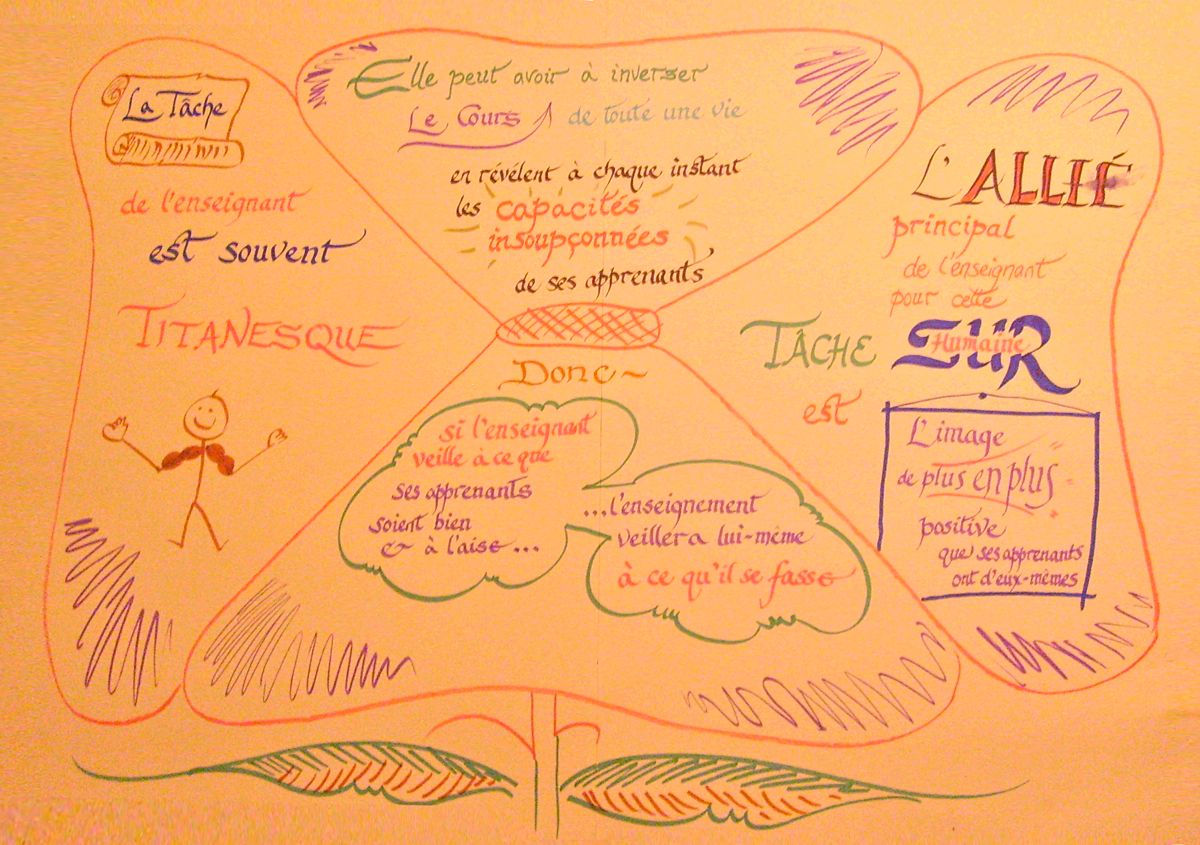 La Tâche
de l'enseignant
est souvent
TITANESQUE
Elle peut avoir à inverser
Le Cours de toute une vie
en révélent à chaque instant
les capacités
insoupçonnées
de ses apprenants
L'ALLIÉ
principal
de l'enseignant
pour cette
TÂCHE SUR
Humaine
est
L'image
de plus en plus
positive
que ses apprenants
ont d'eux-mêmes
Donc~
si l'enseignant
veille à ce que
ses apprenants
soient bien
& à l'aise...
...l'enseignement
veillera lui-même
à ce qu'il se fasse